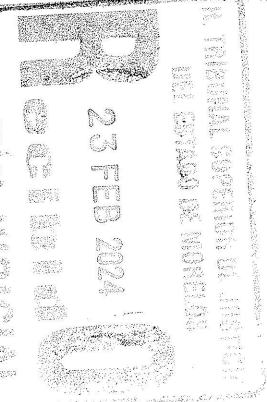 H. TRIBUNAL SUPERIOR DE JUSTICIA
DEL ESTADO DE MORELOS
23 FEB 2024
RECIBIDO